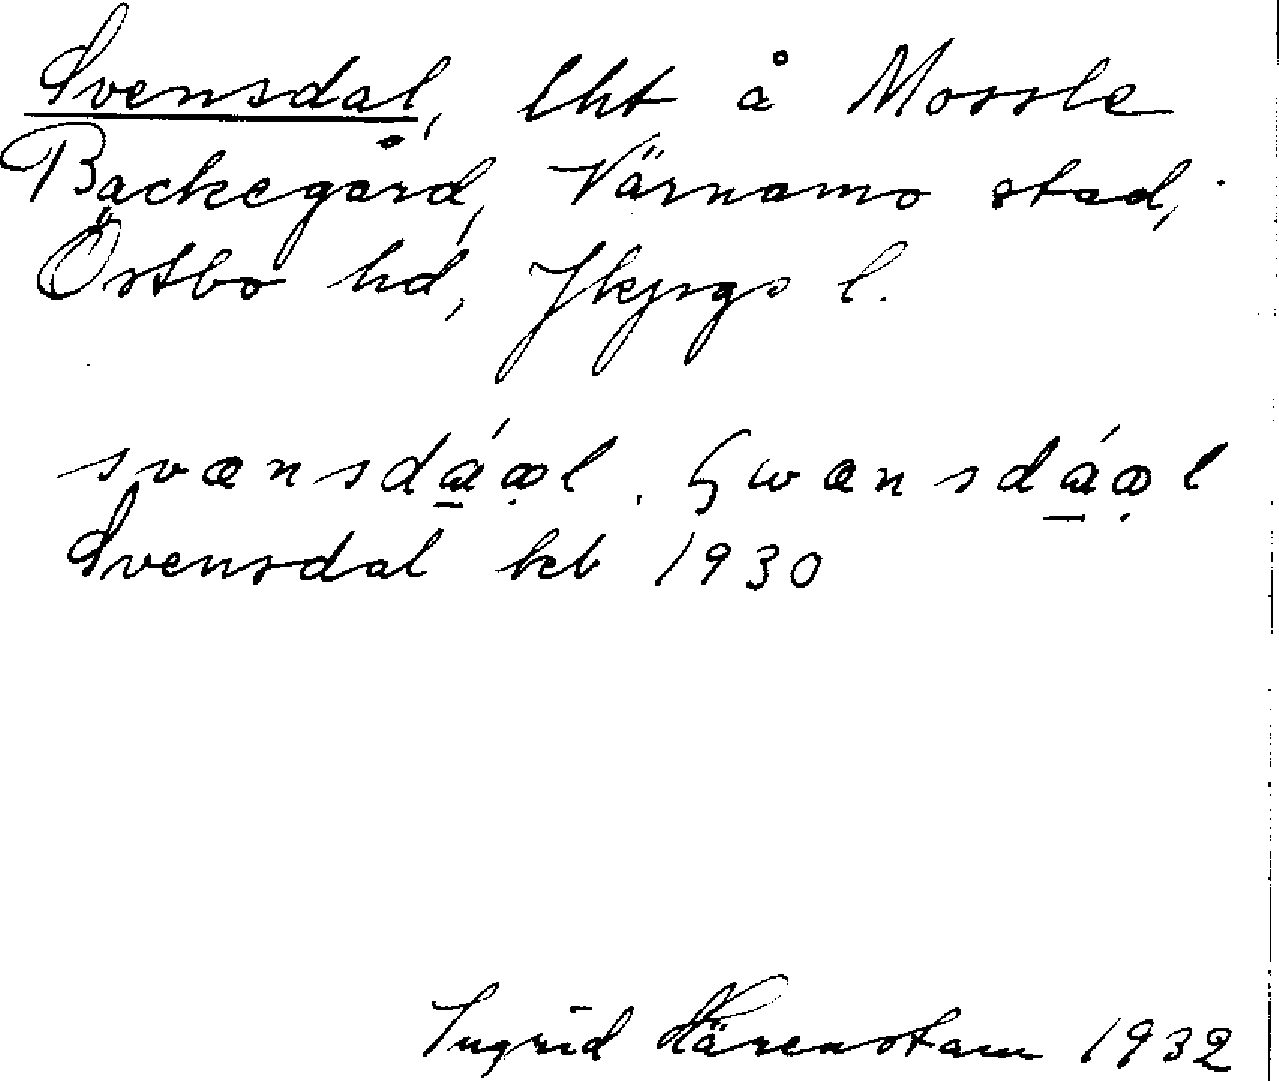 Svensdal, lht å Mossle
Backegård, Värnamo stad,
Östbo hd, Jkpgs l.
svænsdá̱æ̣l. ʢwænsdá̱æ̣l
Svensdal kb 1930
Ingrid Härenstam 1932